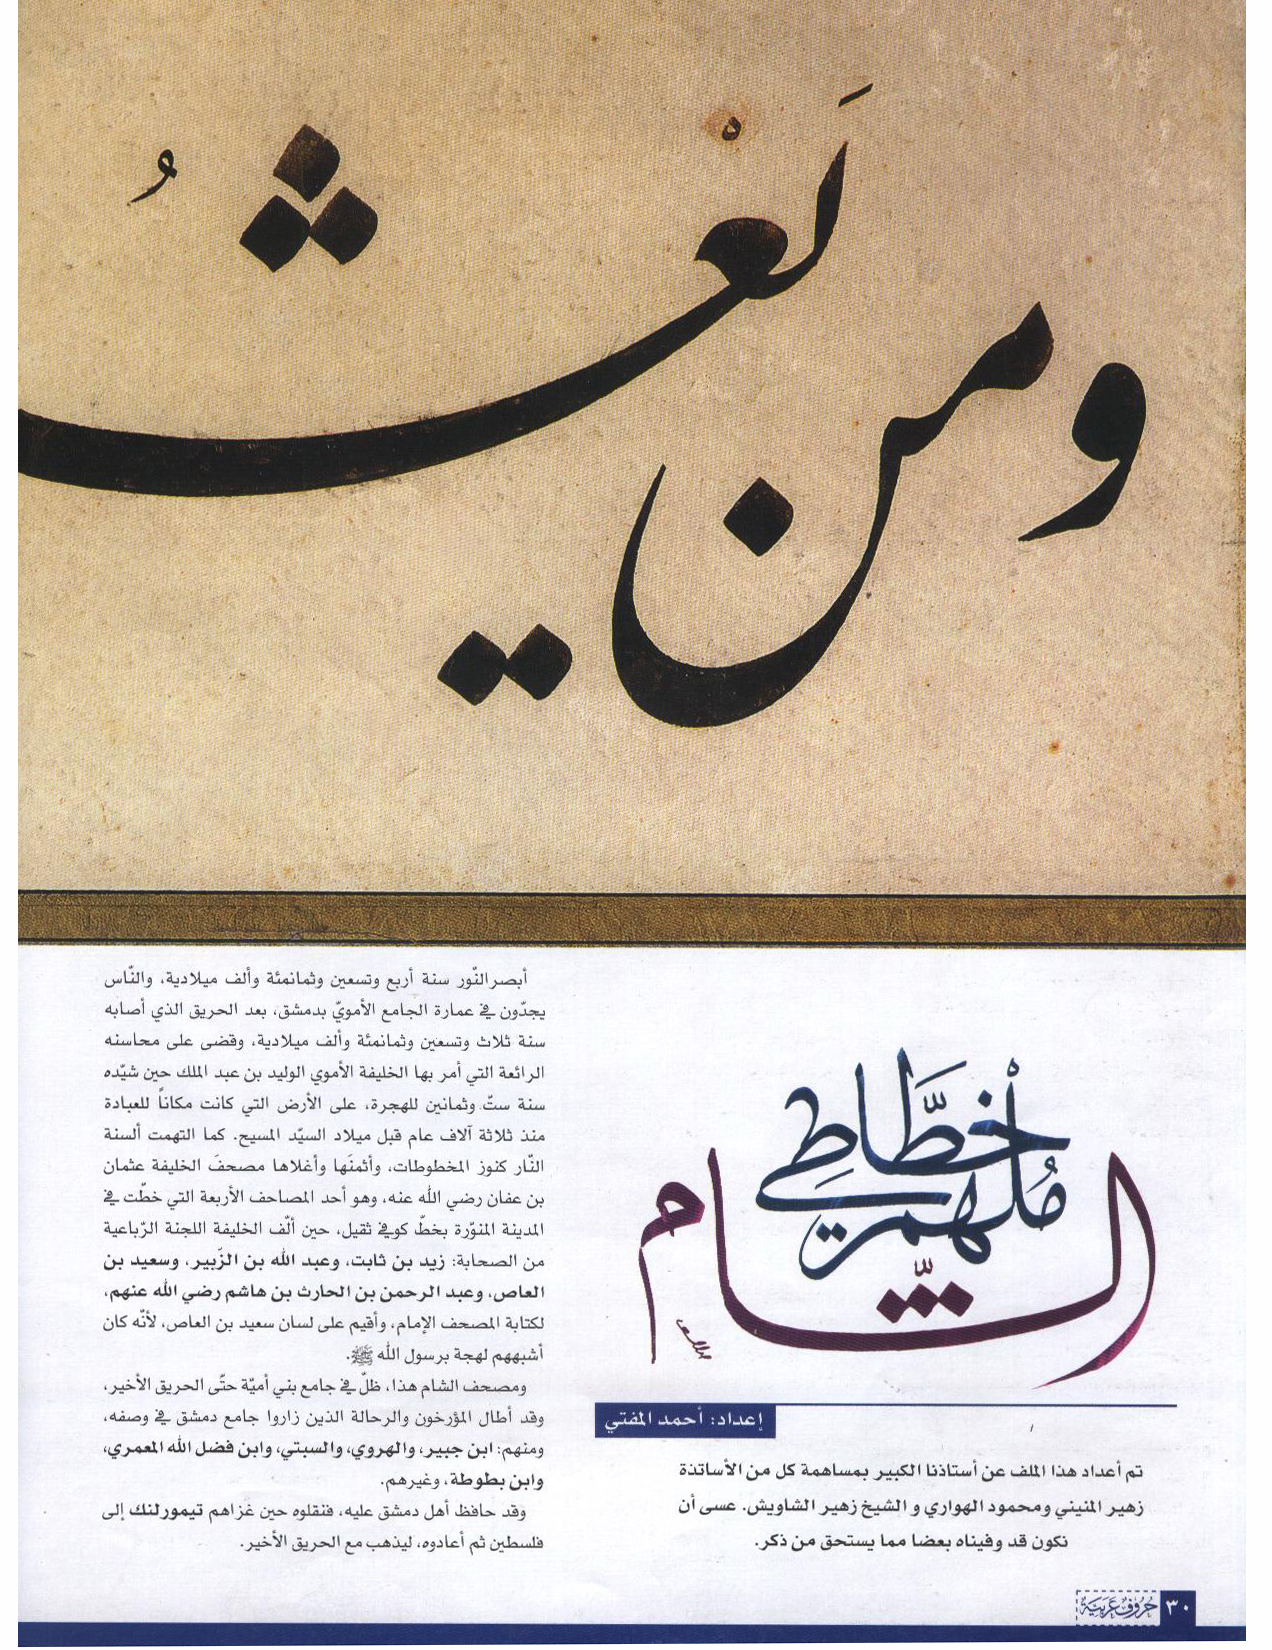 ومن يَعْثُ
مُلهم خطَّاطي
الشّام
إعداد: أحمد المفتي
تم أعداد هذا الملف عن أستاذنا الكبير بمساهمة كل من الأساتذة
زهير المنيني ومحمود الهواري و الشيخ زهير الشاويش. عسى أن
نكون قد وفيناه بعضا مما يستحق من ذكر.
أبصر النّور سنة أربع وتسعين وثمانمئة وألف ميلادية، والنّاس
يجدّون في عمارة الجامع الأمويّ بدمشق، بعد الحريق الذي أصابه
سنة ثلاث وتسعين وثمانمئة وألف ميلادية، وقضى على محاسنه
الرائعة التي أمر بها الخليفة الأموي الوليد بن عبد الملك حين شيّده
سنة ستّ وثمانين للهجرة، على الأرض التي كانت مكاناً للعبادة
منذ ثلاثة آلاف عام قبل ميلاد السيّد المسيح. كما التهمت ألسنة
النّار كنوز المخطوطات، وأثمنَها وأغلاها مصحفَ الخليفة عثمان
بن عفان رضي الله عنه، وهو أحد المصاحف الأربعة التي خطّت في
المدينة المنوّرة بخطّ كوفي ثقيل، حين ألّف الخليفة اللجنة الرّباعية
من الصحابة: زيد بن ثابت، وعبد الله بن الزّبير، وسعيد بن
العاص، وعبد الرحمن بن الحارث بن هاشم رضي الله عنهم،
لكتابة المصحف الإمام، وأقيم على لسان سعيد بن العاص، لأنّه كان
أشبههم لهجة برسول الله ﷺ.
ومصحف الشام هذا، ظلّ في جامع بني أميّة حتّى الحريق الأخير،
وقد أطال المؤرخون والرحالة الذين زاروا جامع دمشق في وصفه،
ومنهم: ابن جبير، والهروي، والسبتي، وابن فضل الله المعمري،
وابن بطوطة، وغيرهم.
وقد حافظ أهل دمشق عليه، فنقلوه حين غزاهم تيمورلنك إلى
فلسطين ثم أعادوه، ليذهب مع الحريق الأخير.
٣٠ حُروفٌ عَرَبيَّة